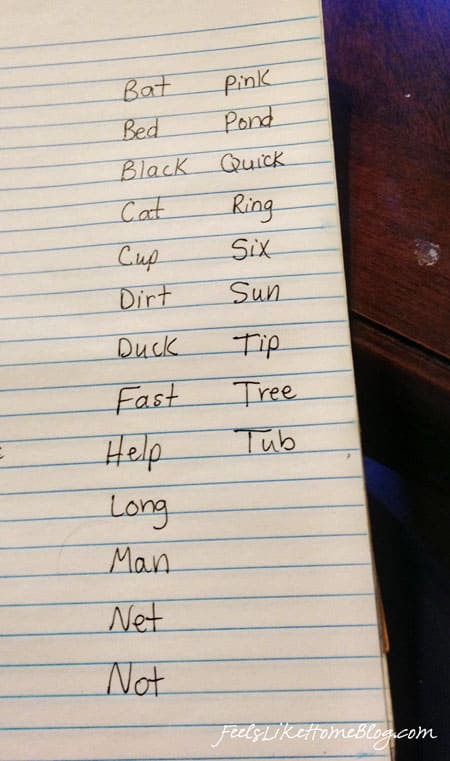 Bat
Bed
Black
Cat
Cup
Dirt
Duck
Fast
Help
Long
Man
Net
Not
Pink
Pond
Quick
Ring
Six
Sun
Tip
Tree
Tub
FeelsLikeHomeBlog.com